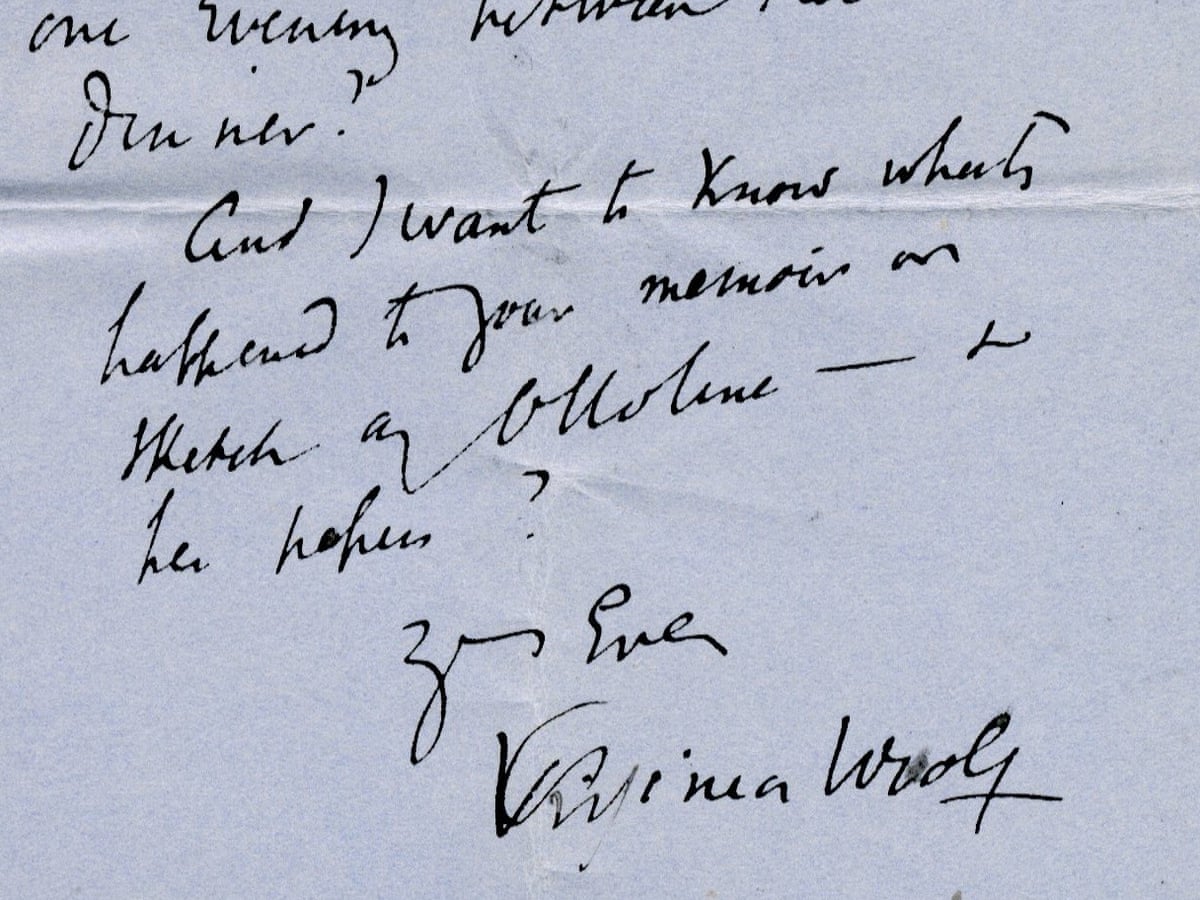 one evening between
dinner?
And I want to know whats
happened to your memoir or
sketch of Ottoline — &
her papers?
Yrs Ever
Virginia Woolf